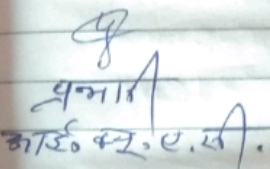 प्रभारी
आई० क्यू. ए. सी.